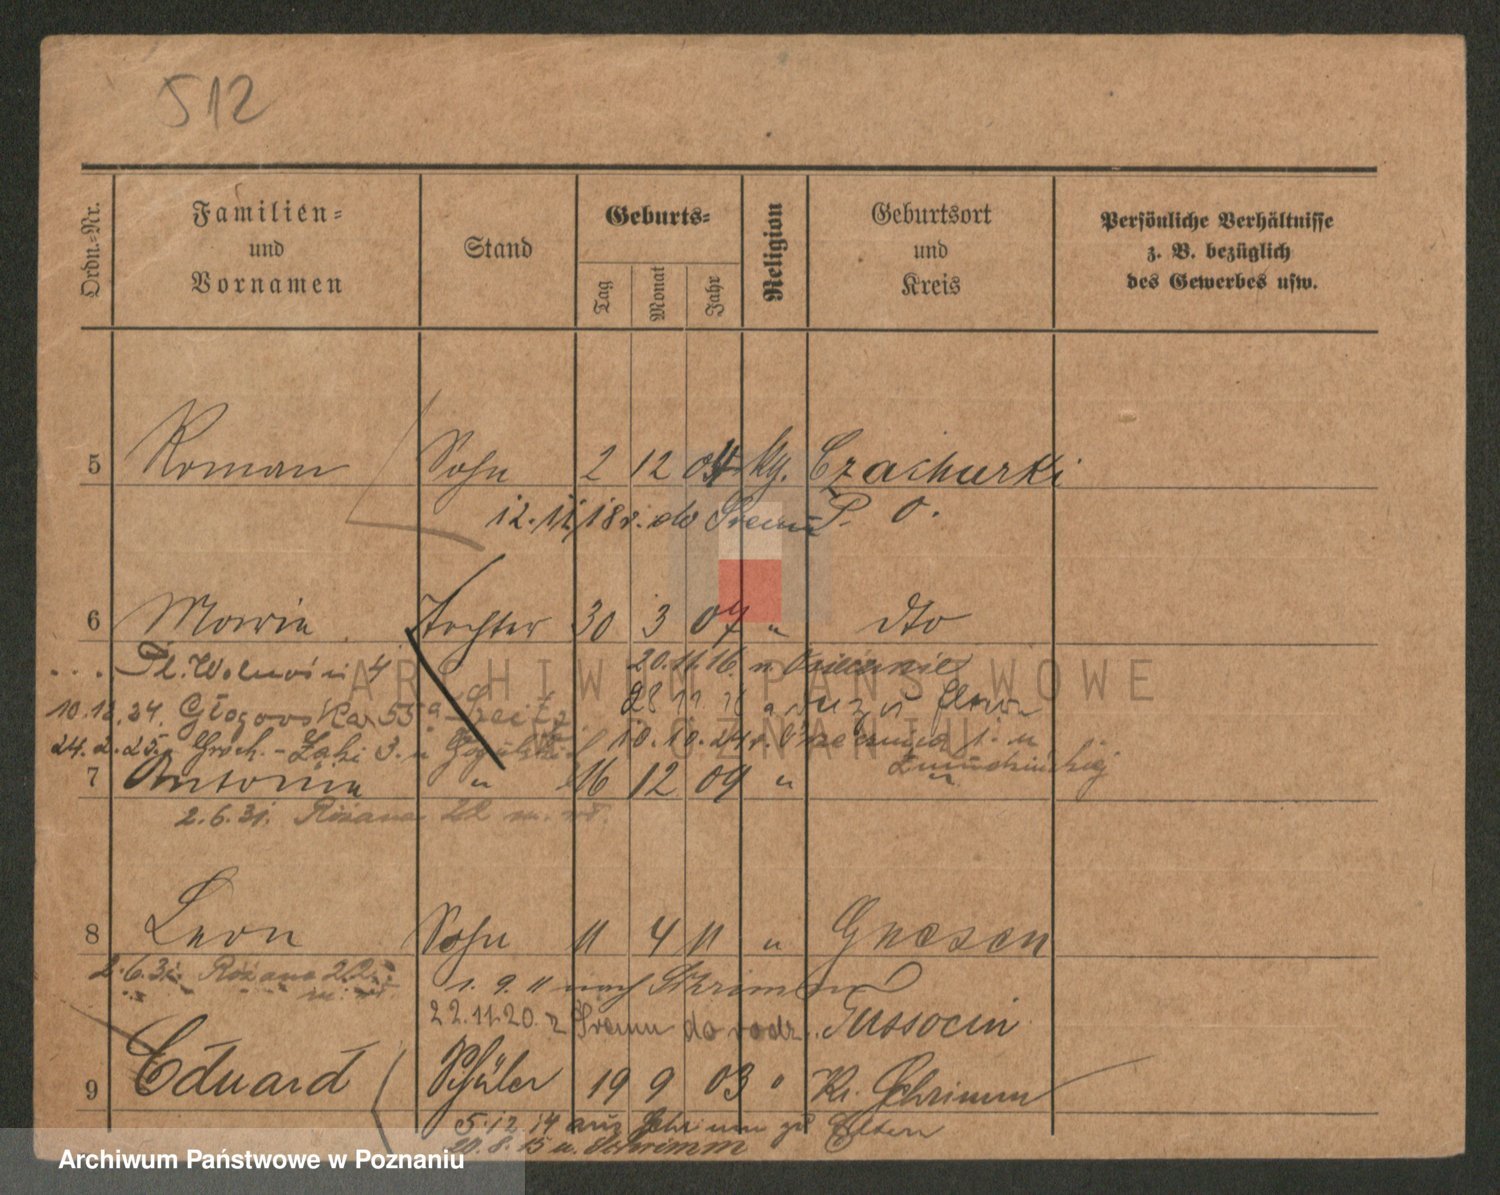 512
Ordn.=Nr.
Familien=
und
Vornamen
Stand
Geburts=
Tag
Monat
Jahr
Religion
Geburtsort
und
Kreis
Persönliche Verhältnisse
z. B. bezüglich
des Gewerbes usw.
5 Roman Sohn 2 12 04 kg. Czachurki
12.11.18 r. do Śremu P. O.
6 Maria Tochter 30 3 07 " dto
... Pl. Wolności 4 20.11.16. n.
10.12.24. Głogowska 55a 28 11 16
24.2.25. Groch.-Łąki 3. 10.10.24
7 Antonina " 16 12 09 " "
2.6.31. Różana 22 m.
8 Leon Sohn 11 4 11 " Gnesen
2.6.31. Różana 22 1. 9. 11 nach Schrimm
m.
22.11.20. z Śremu do rodz. Mssocin
9 Eduard Schüler 19 9 03 " Kr. Schrimm
5.12.14 aus Schrimm zu Eltern
20.8.15 n. Schrimm
ARCHIWUM PAŃSTWOWE
W POZNANIU
Archiwum Państwowe w Poznaniu